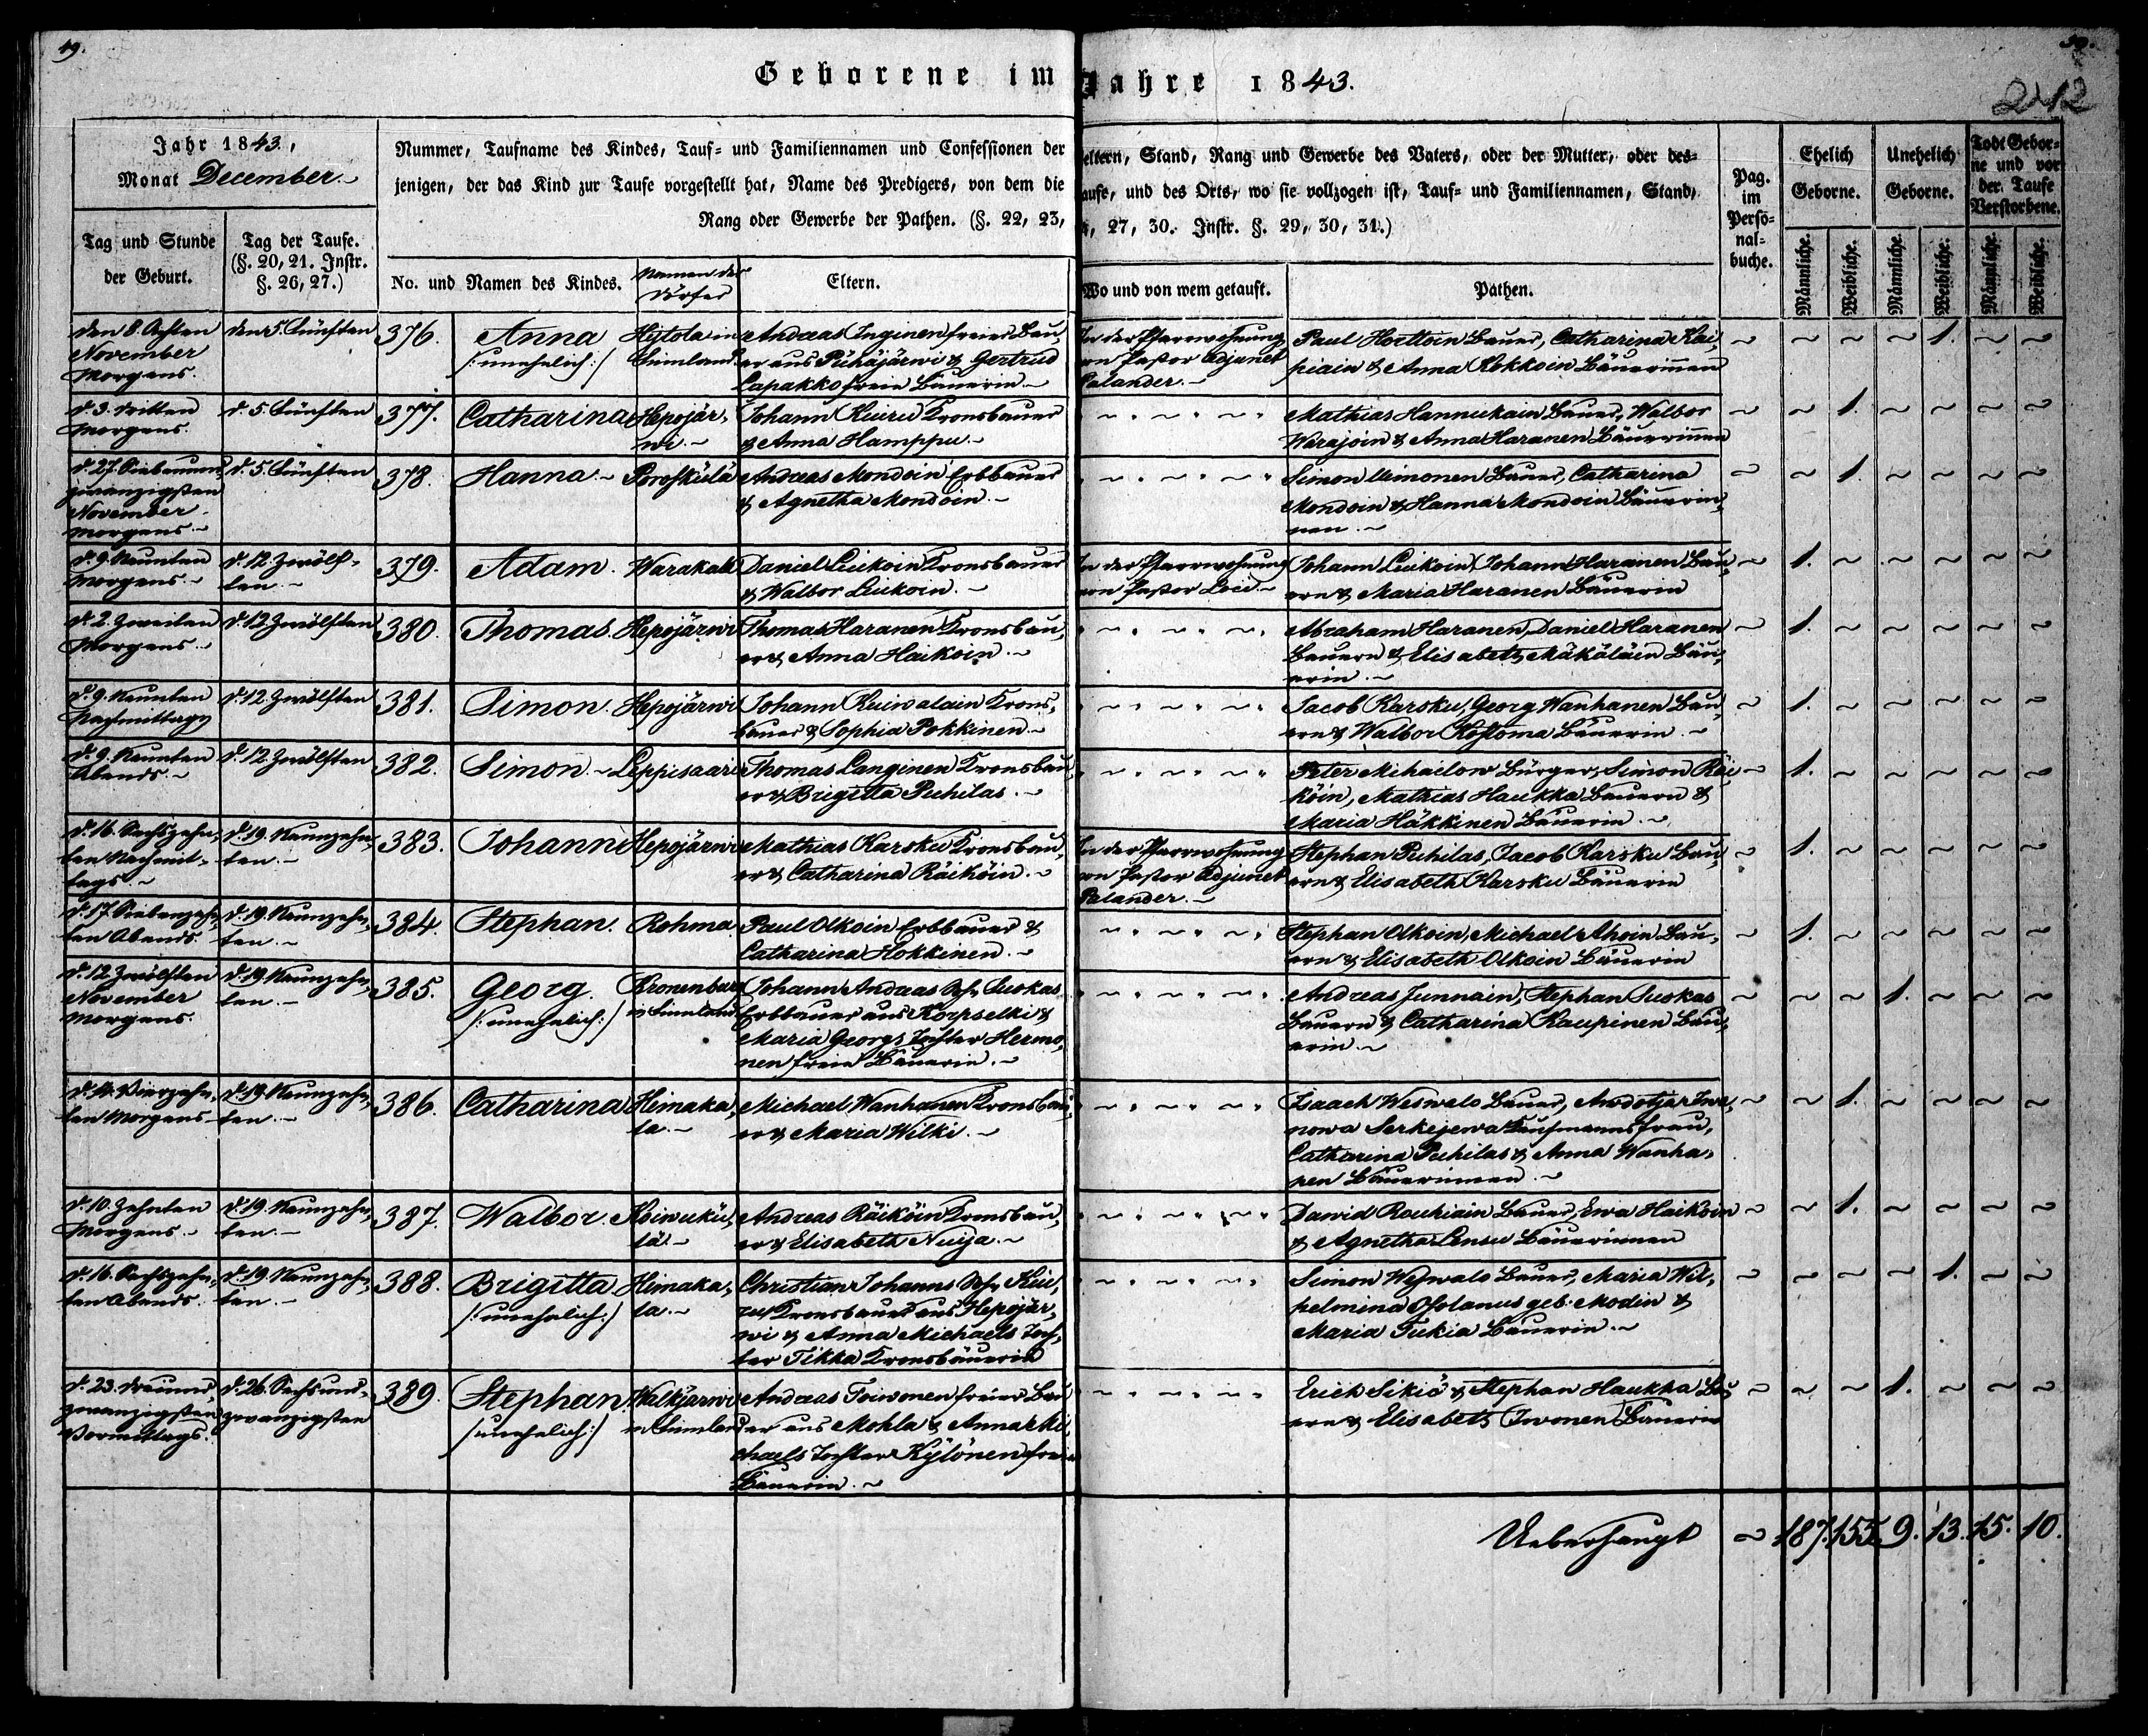 49.
50.
Geborene im Jahre 1843.
212
Jahr 1843,
Monat December.
Tag und Stunde
der Geburt.
Tag der Taufe.
(§. 20, 21. Instr.
§. 26, 27.)
Nummer, Taufname des Kindes, Tauf= und Familiennamen und Confessionen der
jenigen, der das Kind zur Taufe vorgestellt hat, Name des Predigers, von dem die
Rang oder Gewerbe der Pathen. (§. 22, 23,
No. und Namen des Kindes.
Namen der
Dörfer
Eltern.
eltern, Stand, Rang und Gewerbe des Vaters, oder der Mutter, oder des=
aufe, und des Orts, wo sie vollzogen ist, Tauf= und Familiennamen, Stand,
, 27, 30. Instr. §. 29, 30, 31.)
Wo und von wem getauft.
Pathen.
Pag.
im
Perso=
nal=
buche.
Ehelich
Geborne.
Unehelich
Geborne.
Todt Gebor=
ne und vor
der Taufe
Verstorbene.
Männliche.
Weibliche.
Männliche.
Weibliche.
Männliche.
Weibliche.
den 8. Achten
November
Morgens.
den 5. Fünften
376.
Anna
/: unehelich :/
Hytola in
Finnland
Andreas Inginen freier Bau,
er aus Pühäjärwi & Gertrud
Lapakko freie Bäuerin.
In der Pfarrwohnung
von Pastor Adjunct
Palander.
Paul Horttoin Bauer, Catharina Kai,
piain & Anna Kokkoin Bäuerinnen
1.
d. 3. Dritten
Morgens.
d. 5. Fünften
377.
Catharina
Hepojär,
wi.
Johann Kuiru Kronsbauer
& Anna Hamppu
Mathias Hannukain Bauer, Walbor
Warajoin & Anna Haranen Bäuerinnen
1.
d. 27. Siebenund
zwanzigsten
November
Morgens.
d. 5. Fünften
378.
Hanna.
Poroskülä
Andreas Mondoin Erbbauer
& Agnetha Mondoin.
Simon Uimonen Bauer, Catharina
Mondoin & Hanna Mondoin Bäuerin,
nen.
1.
d. 9. Neunten
Morgens.
d. 12. Zwölf-
ten.
379.
Adam.
Warakala
Daniel Liukoin Kronsbauer
& Walbor Liukoin.
In der Pfarrwohnung
von Pastor
Johann Liukoin, Johann Haranen Bau,
ern & Maria Haranen Bäuerin
1.
d. 2. Zweiten
Morgens.
d. 12. Zwölften
380.
Thomas.
Hepojärwi
Thomas Haranen Kronsbau,
er & Anna Haikoin.
Abraham Haranen, Daniel Haranen
Bauern & Elisabeth Mäköläin Bäu,
erin.
1.
d. 9. Neunten
Nachmittags
d. 12. Zwölften
381.
Simon.
Hepojärwi
Johann Kuiwalain Krons,
bauer & Sophia Pokkinen.
Jacob Karsku, Georg Wanhanen Bau,
ern & Walbor Kostoma Bäuerin.
1.
d. 9. Neunten
Abends.
d. 12. Zwölften
382.
Simon.
Leppisaari
Thomas Langinen Kronsbau,
er & Brigitta Puhilas.
Peter Mihailow Bürger, Simon Räi
köin, Mathias Haukka Bauern &
Maria Häkkinen Bäuerin.
1.
d. 16. Sechszehn,
ten Nachmit-
tags.
d. 19. Neunzehn,
ten.
383.
Johann
Hepojärwi
Mathias Karsku Kronsbau,
er & Catharina Räiköin.
In der Pfarrwohnung
von Pastor Adjunct
Palander.
Stephan Puhilas, Jacob Karsku Bau,
ern & Elisabeth Karsku Bäuerin
1.
d. 17. Siebenzehn,
ten Abends.
d. 19. Neunzehn,
ten.
384.
Stephan.
Rohma
Paul Olkoin Erbbauer &
Catharina Hokkinen.
Stephan Olkoin, Michael Ahoin Bau,
ern & Elisabeth Olkoin Bäuerin
1.
d. 12. Zwölften
November
Morgens.
d. 19. Neunzehn,
ten.
385.
Georg.
/: unehelich :/
Kronenburg
in Finnland
Johann Andreas Suokas
Erbbauer aus Korpselki &
Maria Georgs Tochter Hermo,
nen freie Bäuerin.
Andreas Junnain, Stephan Suokas
Bauern & Catharina Kaupinen Bäu,
erin.
1.
d. 14. Vierzehn,
ten Morgens
d. 19. Neunzehn,
ten.
386.
Catharina
Heimaka,
la.
Michael Wanhanen Kronsbau,
er & Maria Wilki.
Isaack Weswalo Bauer, Awdotja Iwa,
nowa Serkejewa Kaufmannsfrau,
Catharina Puhilas & Anna Wanha,
nen Bäuerinnen.
1.
d. 10. Zehnten
Morgens.
d. 19. Neunzehn,
ten.
387.
Walbor.
Koiwukü,
lä.
Andreas Räiköin Kronsbau,
er & Elisabeth Nuija.
Dawid Rouhiain Bauer, Ewa Haikoin
& Agnetha Lensu Bäuerinnen
1.
d. 16. Sechszehn,
ten Abends.
d. 19. Neunzehn,
ten.
388.
Brigitta
/: unehelich :/
Heimaka,
la.
Christian Johanns Kui,
ru Kronsbauer aus Hepojär,
wi & Anna Michaels Toch,
ter Tikka Kronsbäuerin
Simon Weswalo Bauer, Maria Wil,
helmina geb. Modin &
Maria Tukia Bäuerin.
1.
d. 23. Dreiund
zwanzigsten
Vormittags.
d. 26. Sechsund-
zwanzigsten
389.
Stephan.
/: unehelich :/
Walkjärwi
in Finnland
Andreas Toiwonen freier Bau
er aus Mohla & Anna Mi,
chaels Tochter Kylönen freie
Bäuerin.
Erich Sikiö & Stephan Haukka Bau
ern & Elisabeth Iwonen Bäuerin
1.
Ueberhaupt
187. 155. 9. 13. 15. 10.